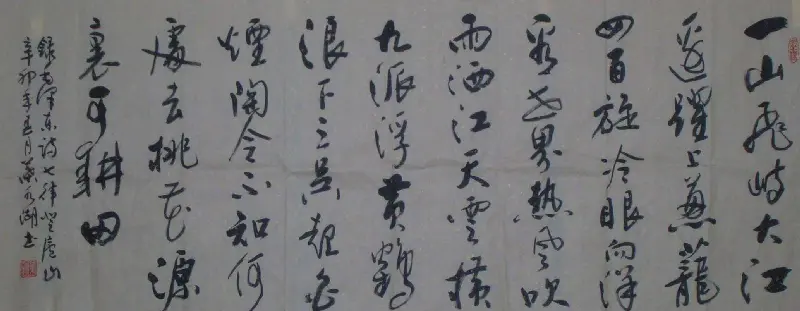 一山飛峙大江
邊躍上蔥蘢
四百旋冷眼向洋
看世界熱風吹
雨洒江天雲横
九派浮黄鶴
浪下三吴起白
煙陶令不知何
處去桃花源
裏可耕田
録毛澤東詩七律登廬山
辛卯年五月永湖书